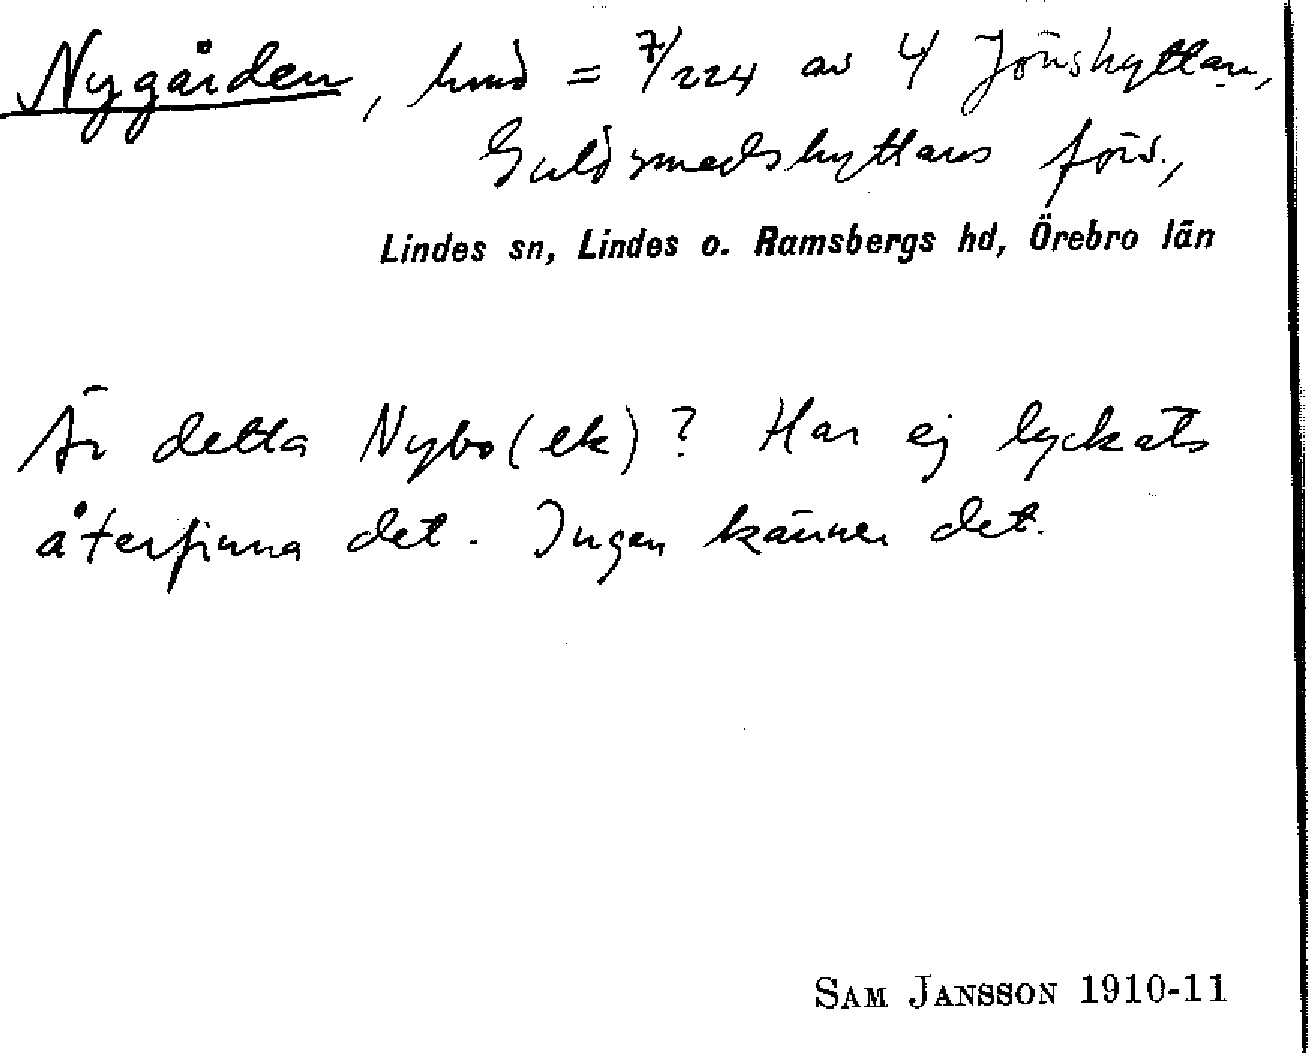 Nygården, hmd = 7/224 av 4 Jönshyttan,
Guldsmedshyttans förs.,
Lindes sn, Lindes o. Ramsbergs hd, Örebro län
Är detta Nybo (ek)? Har ej lyckats
återfinna det. Ingen känner det.
SAM JANSSON 1910-11